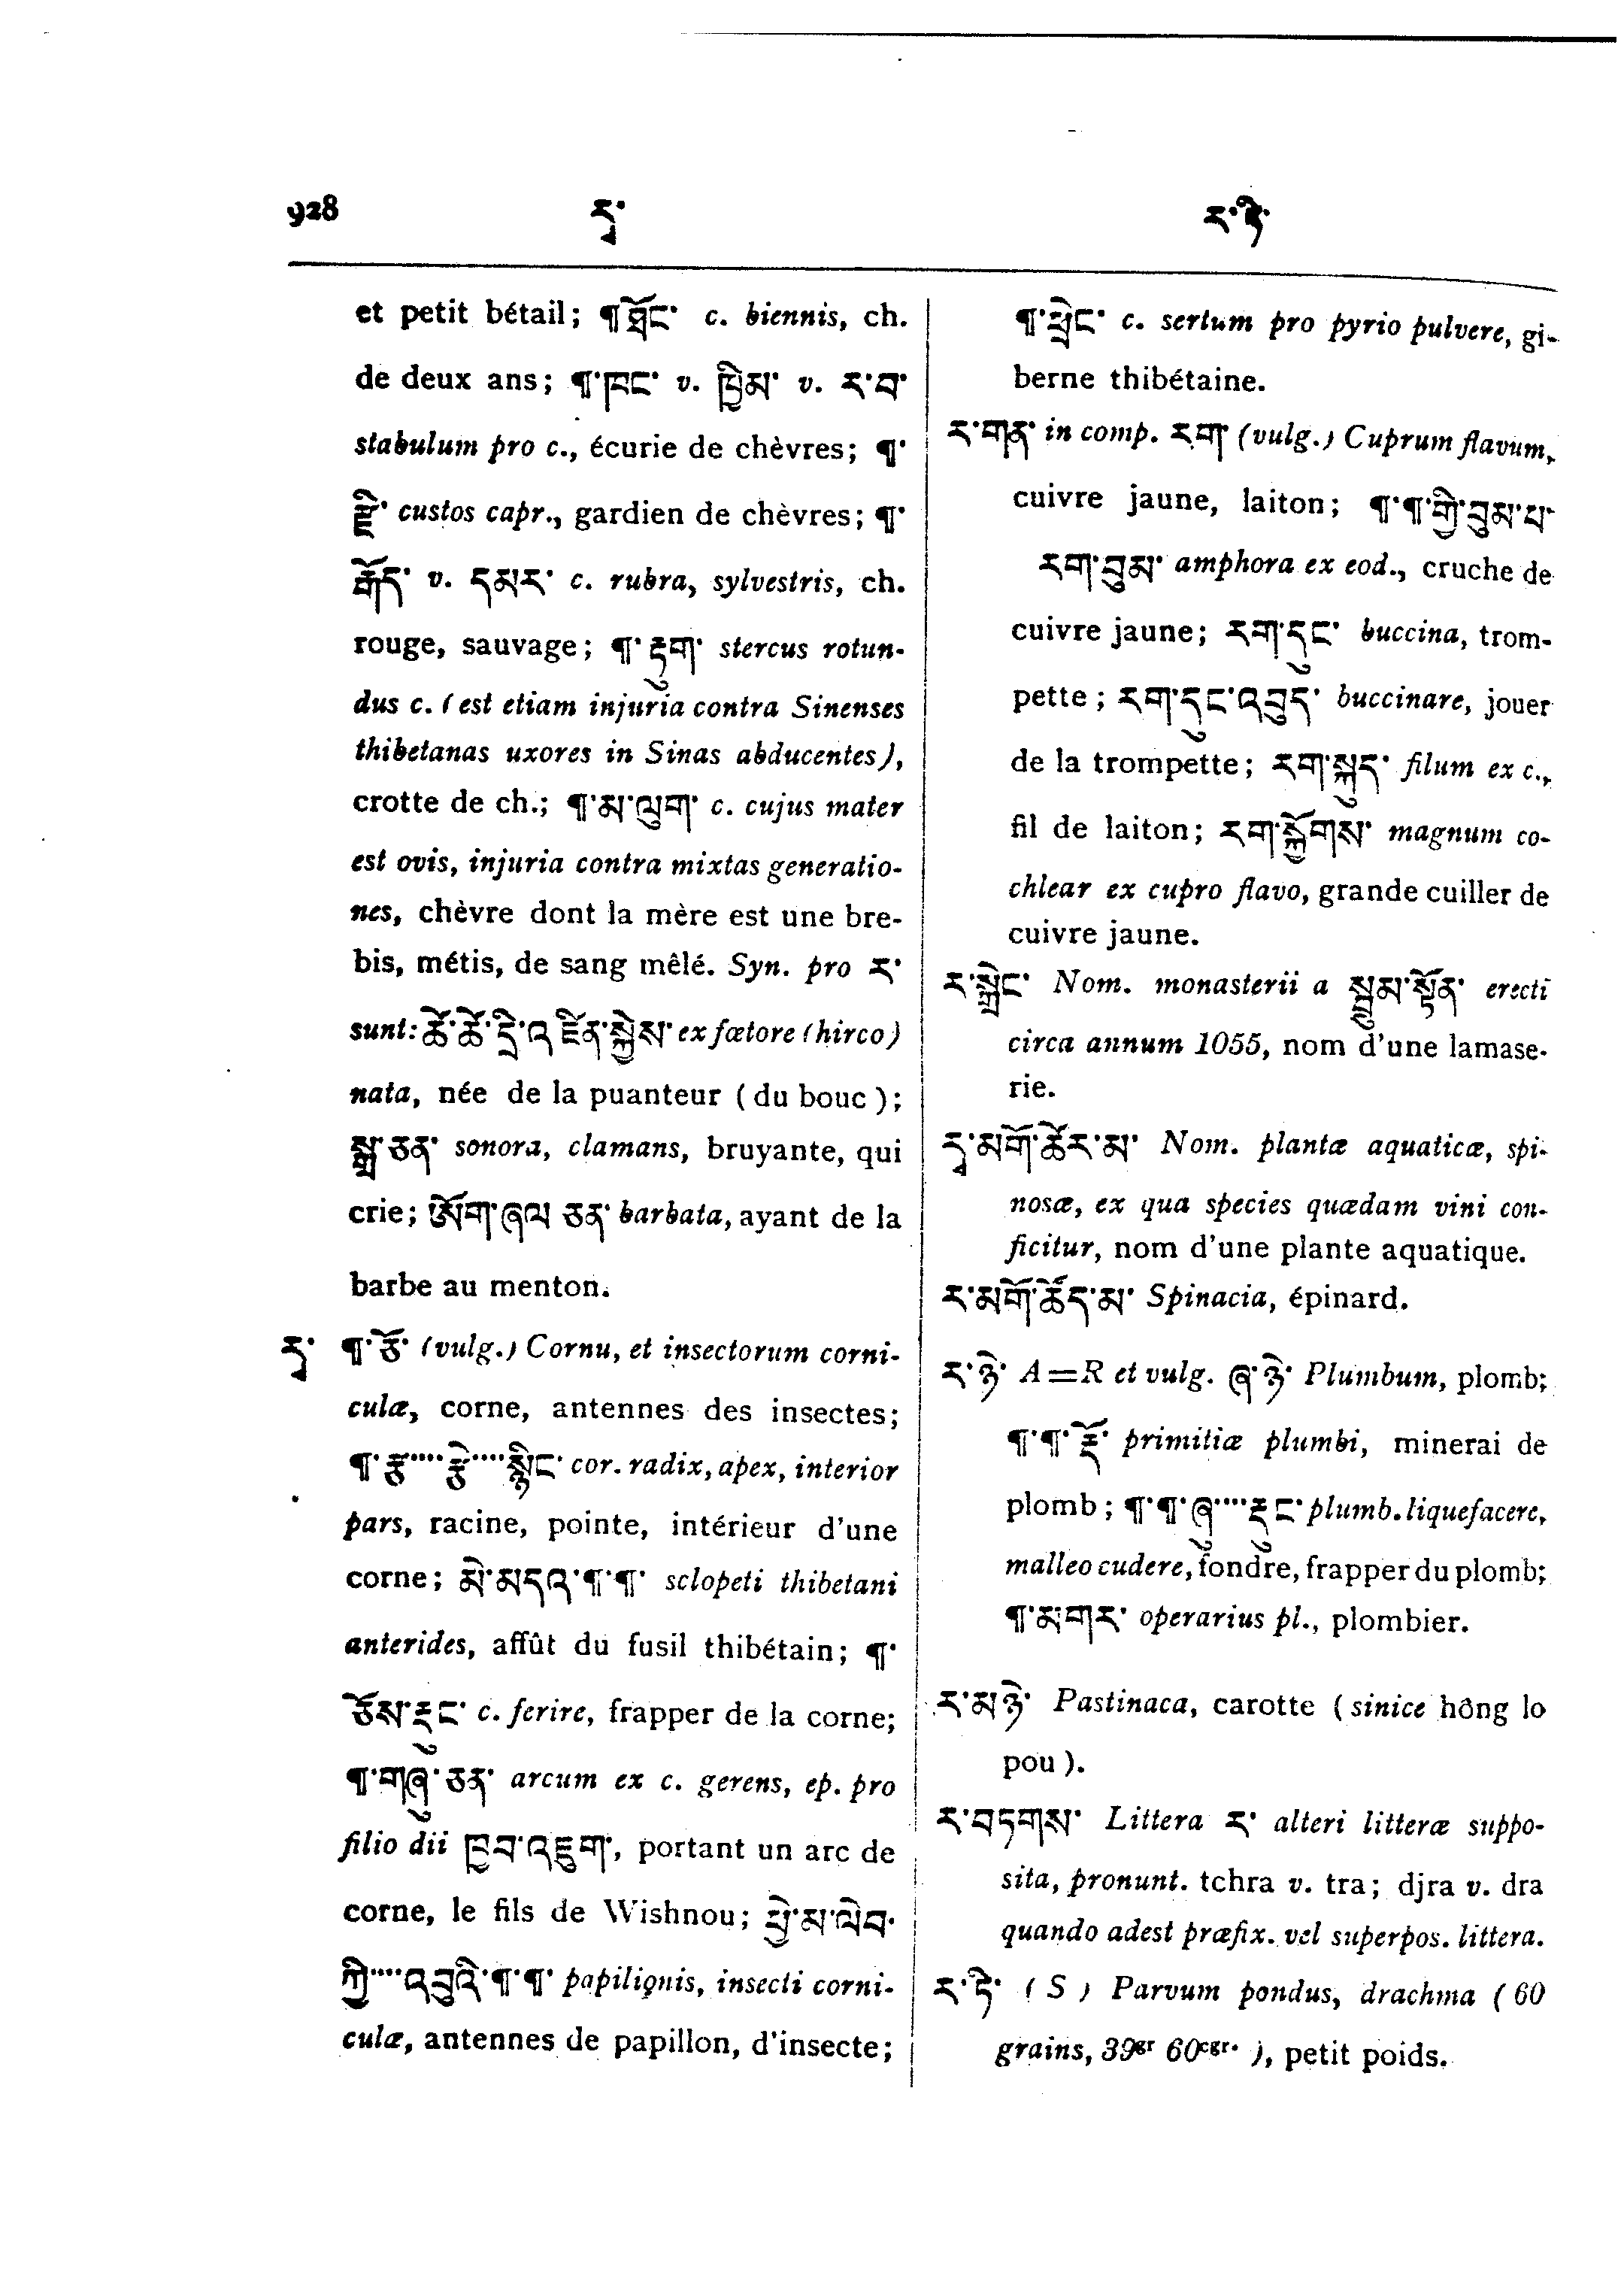 928
རྭ་
ར་ཏི་
et petit bétail; ¶ཐོང་ c. biennis, ch.
de deux ans; ¶་ཁང་ v. ཁྱིམ་ v. ར་བ་
stabulum pro c., écurie de chèvres; ¶་
རྫི་ custos capr., gardien de chèvres; ¶་
རྒོད་ v. དམར་ c. rubra, sylvestris, ch.
rouge, sauvage; ¶་རྟུག་ stercus rotun-
dus c. (est etiam injuria contra Sinenses
thibetanas uxores in Sinas abducentes),
crotte de ch.; ¶་མ་ལུག་ c. cujus mater
est ovis, injuria contra mixtas generatio-
nes, chèvre dont la mère est une bre-
bis, métis, de sang mêlé. Syn. pro ར་
sunt: ex fœtore (hirco)
nata, née de la puanteur (du bouc);
སྒྲ་ཅན་ sonora, clamans, bruyante, qui
crie; ཨོག་ཞལ་ཅན་ barbata, ayant de la
barbe au menton.
རྭ་ ¶་ཅོ་ (vulg.) Cornu, et insectorum corni-
culæ, corne, antennes des insectes;
¶་རྩ་····རྩེ་····སྙིང་ cor. radix, apex, interior
pars, racine, pointe, intérieur d'une
corne; མེ་མདའ་¶་¶་ sclopeti thibetani
anterides, affût du fusil thibétain; ¶་
ཅོས་རྡུང་ c. ferire, frapper de la corne;
¶་གཞུ་ཅན་ arcum ex c. gerens, ep. pro
filio dii ཁྱབ་འཇུག་, portant un arc de
corne, le fils de Wishnou; ཕྱེ་མ་ལེབ་
ཀྱི་····འབུའི་¶་¶་ papilionis, insecti corni-
culæ, antennes de papillon, d'insecte;
¶་ཕྲེང་ c. sertum pro pyrio pulvere, gi-
berne thibétaine.
ར་གན་ in comp. རག་ (vulg.) Cuprum flavum,
cuivre jaune, laiton; ¶་¶་གྱི་བུམ་པ་
རག་བུམ་ amphora ex eod., cruche de
cuivre jaune; རག་དུང་ buccina, trom-
pette; རག་དུང་འབུད་ buccinare, jouer
de la trompette; རག་སྐུད་ filum ex c.,
fil de laiton; རག་སྐྱོགས་ magnum co-
chlear ex cupro flavo, grande cuiller de
cuivre jaune.
ར་སྒྲེང་ Nom. monasterii a སྦྲུམ་སྟོན་ erecti
circa annum 1055, nom d'une lamase-
rie.
རྭ་མགོ་ཚེར་མ་ Nom. plantæ aquaticæ, spi-
nosæ, ex qua species quædam vini con-
ficitur, nom d'une plante aquatique.
ར་མགོ་ཚོད་མ་ Spinacia, épinard.
ར་ཉེ་ A=R et vulg. ཞ་ཉེ་ Plumbum, plomb;
¶་¶་རྡོ་ primitiæ plumbi, minerai de
plomb; ¶་¶་ཞུ་····རྡུང་ plumb. liquefacere,
malleo cudere, fondre, frapper du plomb;
¶་མགར་ operarius pl., plombier.
ར་མཉེ་ Pastinaca, carotte (sinice hông lo
pou).
ར་བཏགས་ Littera ར་ alteri litteræ suppo-
sita, pronunt. tchra v. tra; djra v. dra
quando adest præfix. vel superpos. littera.
ར་ཏི་ (S) Parvum pondus, drachma (60
grains, 39gr 60cgr.), petit poids.